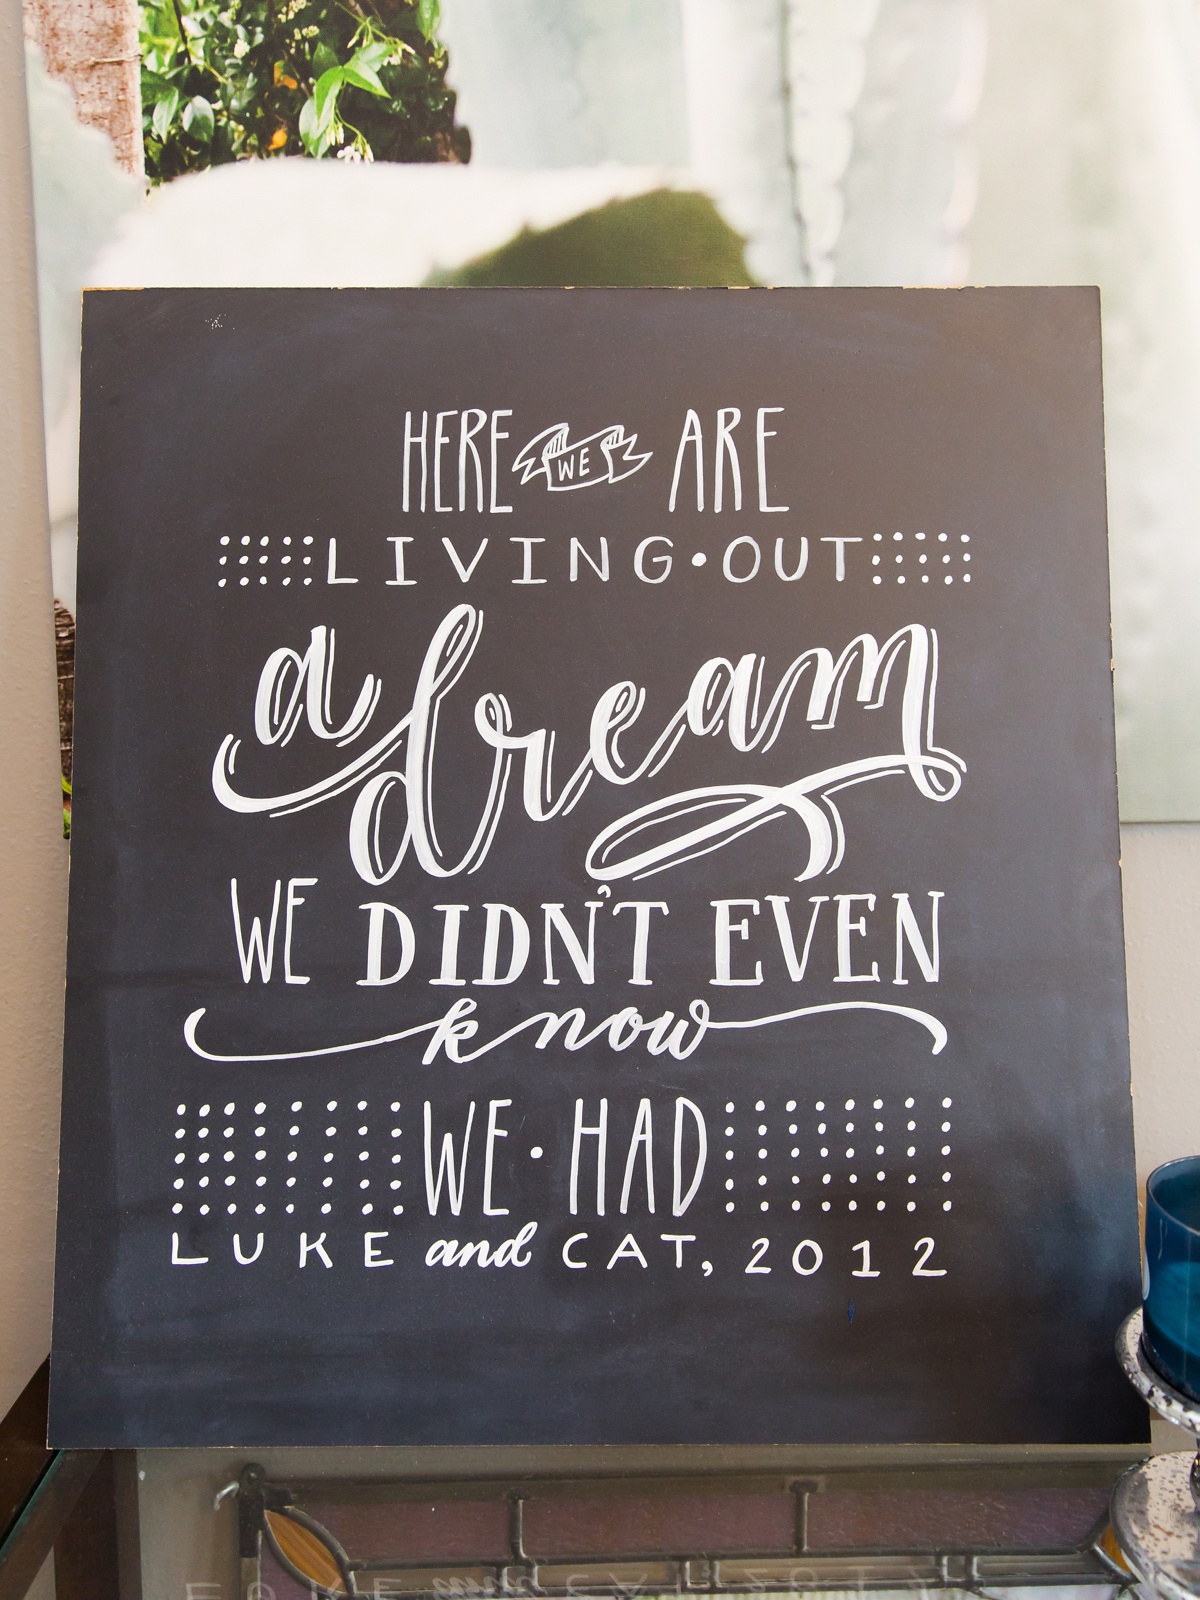 HERE WE ARE
LIVING•OUT
a dream
WE DIDN'T EVEN
know
WE•HAD
LUKE and CAT, 2012